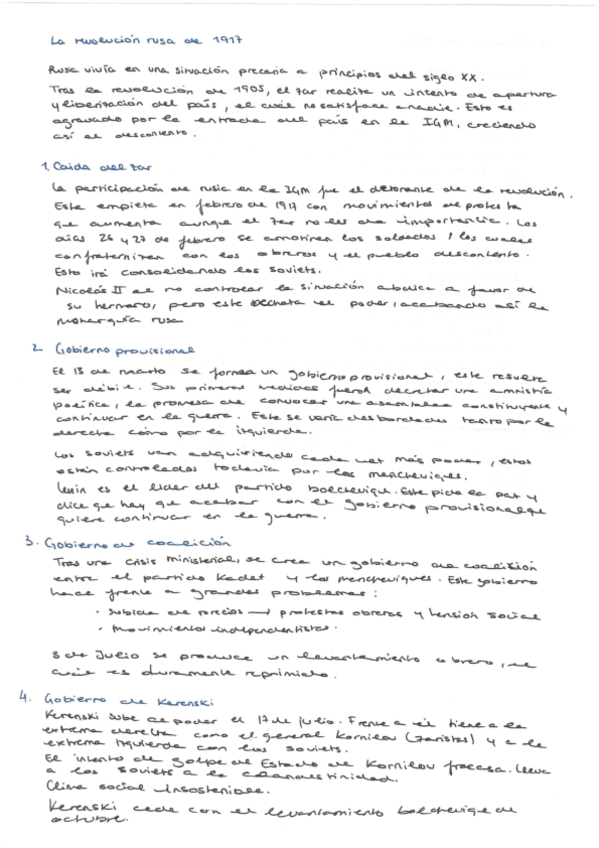 La revolución rusa de 1917
Rusia vivía en una situación precaria a principios del siglo XX.
Tras la revolución de 1905, el tzar realiza un intento de apertura
y liberización del país, el cuál no satisface a nadie. Esto es
agravado por la entrada del país en la IGM, creciendo
así el descontento.
1. Caida del tzar
La participación de rusia en la IGM fue el detonante de la revolución.
Este empieza en febrero de 1917 con movimientos de protesta
que aumenta aunque el tzar no les da importancia. Los
días 26 y 27 de febrero se amotinan los soldados, los cuales
confraternizan con los obreros y el pueblo descontento.
Esto irá consolidando los soviets.
Nicolás II al no controlar la situación abdica a favor de
su hermano, pero este rechaza el poder, acabando así la
monarquía rusa
2. Gobierno provisional
El 13 de marzo se formea un gobierno provisional, este resulta
ser débil. Sus primeras medidas fueron decretar una amnistía
política, la promesa de convocar una asamblea constituyente y
continuar en la guerra. Este se vería desbordado tanto por la
derecha cómo por la izquierda.
Los soviets van adquiriendo cada vez más poder, éstos
están controlados todavía por los mencheviques.
Lenin es el líder del partido bolchevique. Este pide la paz y
dice que hay que acabar con el gobierno provisional que
quiere continuar en la guerra.
3. Gobierno de coalición
Tras una crisis ministerial, se crea un gobierno de coalisión
entre el partido Kadet y los mencheviques. Este gobierno
hace frente a grandes problemas:
· Subida de precios → protestas obreras y tensión social
· Movimientos independentistas.
3 de Julio se produce un levantamiento obrero, el
cuál es duramente reprimido.
4. Gobierno de Kerenski
Kerenski sube al poder el 17 de julio. Frente a él tiene a la
extrema derecha como el general Kornilov (zaristas) y a la
extrema izquierda con los soviets.
El intento de golpe de Estado de Kornilov fracasa. Lleva
a los soviets a la clandestinidad.
Clima social insostenible.
Kerenski cede con el levantamiento bolchevique de
octubre.